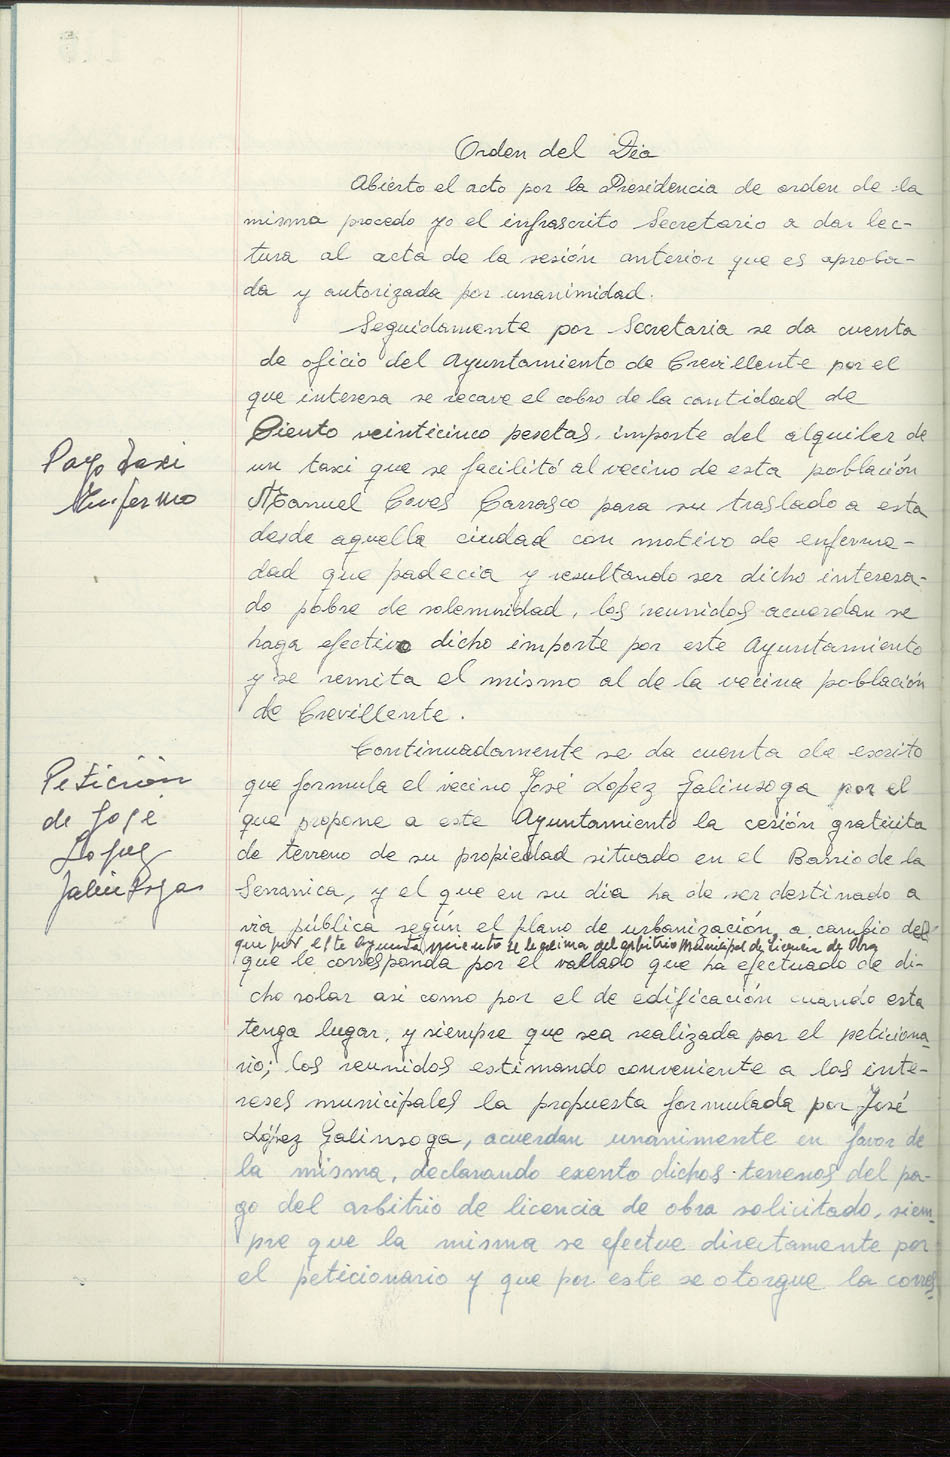 Orden del Dia
Abierto el acto por la Presidencia de orden de la
misma procedo yo el infrascrito Secretario a dar lec-
tura al acta de la sesión anterior que es aproba-
da y autorizada por unanimidad.
Seguidamente por Secretaria se da cuenta
de oficio del Ayuntamiento de Crevillente por el
que interesa se recave el cobro de la cantidad de
Ciento veinticinco pesetas, importe del alquiler de
Pago Taxi
Enfermo
un taxi que se facilitó al vecino de esta población
Manuel Coves Carrasco para su traslado a esta
desde aquella ciudad con motivo de enferme-
dad que padecia y resultando ser dicho interesa-
do pobre de solemnidad, los reunidos acuerdan se
haga efectivo dicho importe por este Ayuntamiento
y se remita el mismo al de la vecina población
de Crevillente.
Continuadamente se da cuenta de escrito
Petición
de José
López
Galinsoga
que formula el vecino José López Galinsoga por el
que propone a este Ayuntamiento la cesión gratuita
de terreno de su propiedad situado en el Barrio de la
Serranica, y el que en su dia ha de ser destinado a
via pública según el plano de urbanización, a cambio de
que por este Ayuntamiento se le exima del arbitrio Municipal de Licencia de Obra
que le corresponda por el vallado que ha efectuado de di-
cho solar asi como por el de edificación cuando esta
tenga lugar, y siempre que sea realizada por el peticiona-
rio; los reunidos estimando conveniente a los inte-
reses municipales la propuesta formulada por José
López Galinsoga, acuerdan unanimente en favor de
la misma, declarando exento dichos terrenos del pa-
go del arbitrio de licencia de obra solicitado, siem-
pre que la misma se efectue directamente por
el peticionario y que por este se otorgue la corres